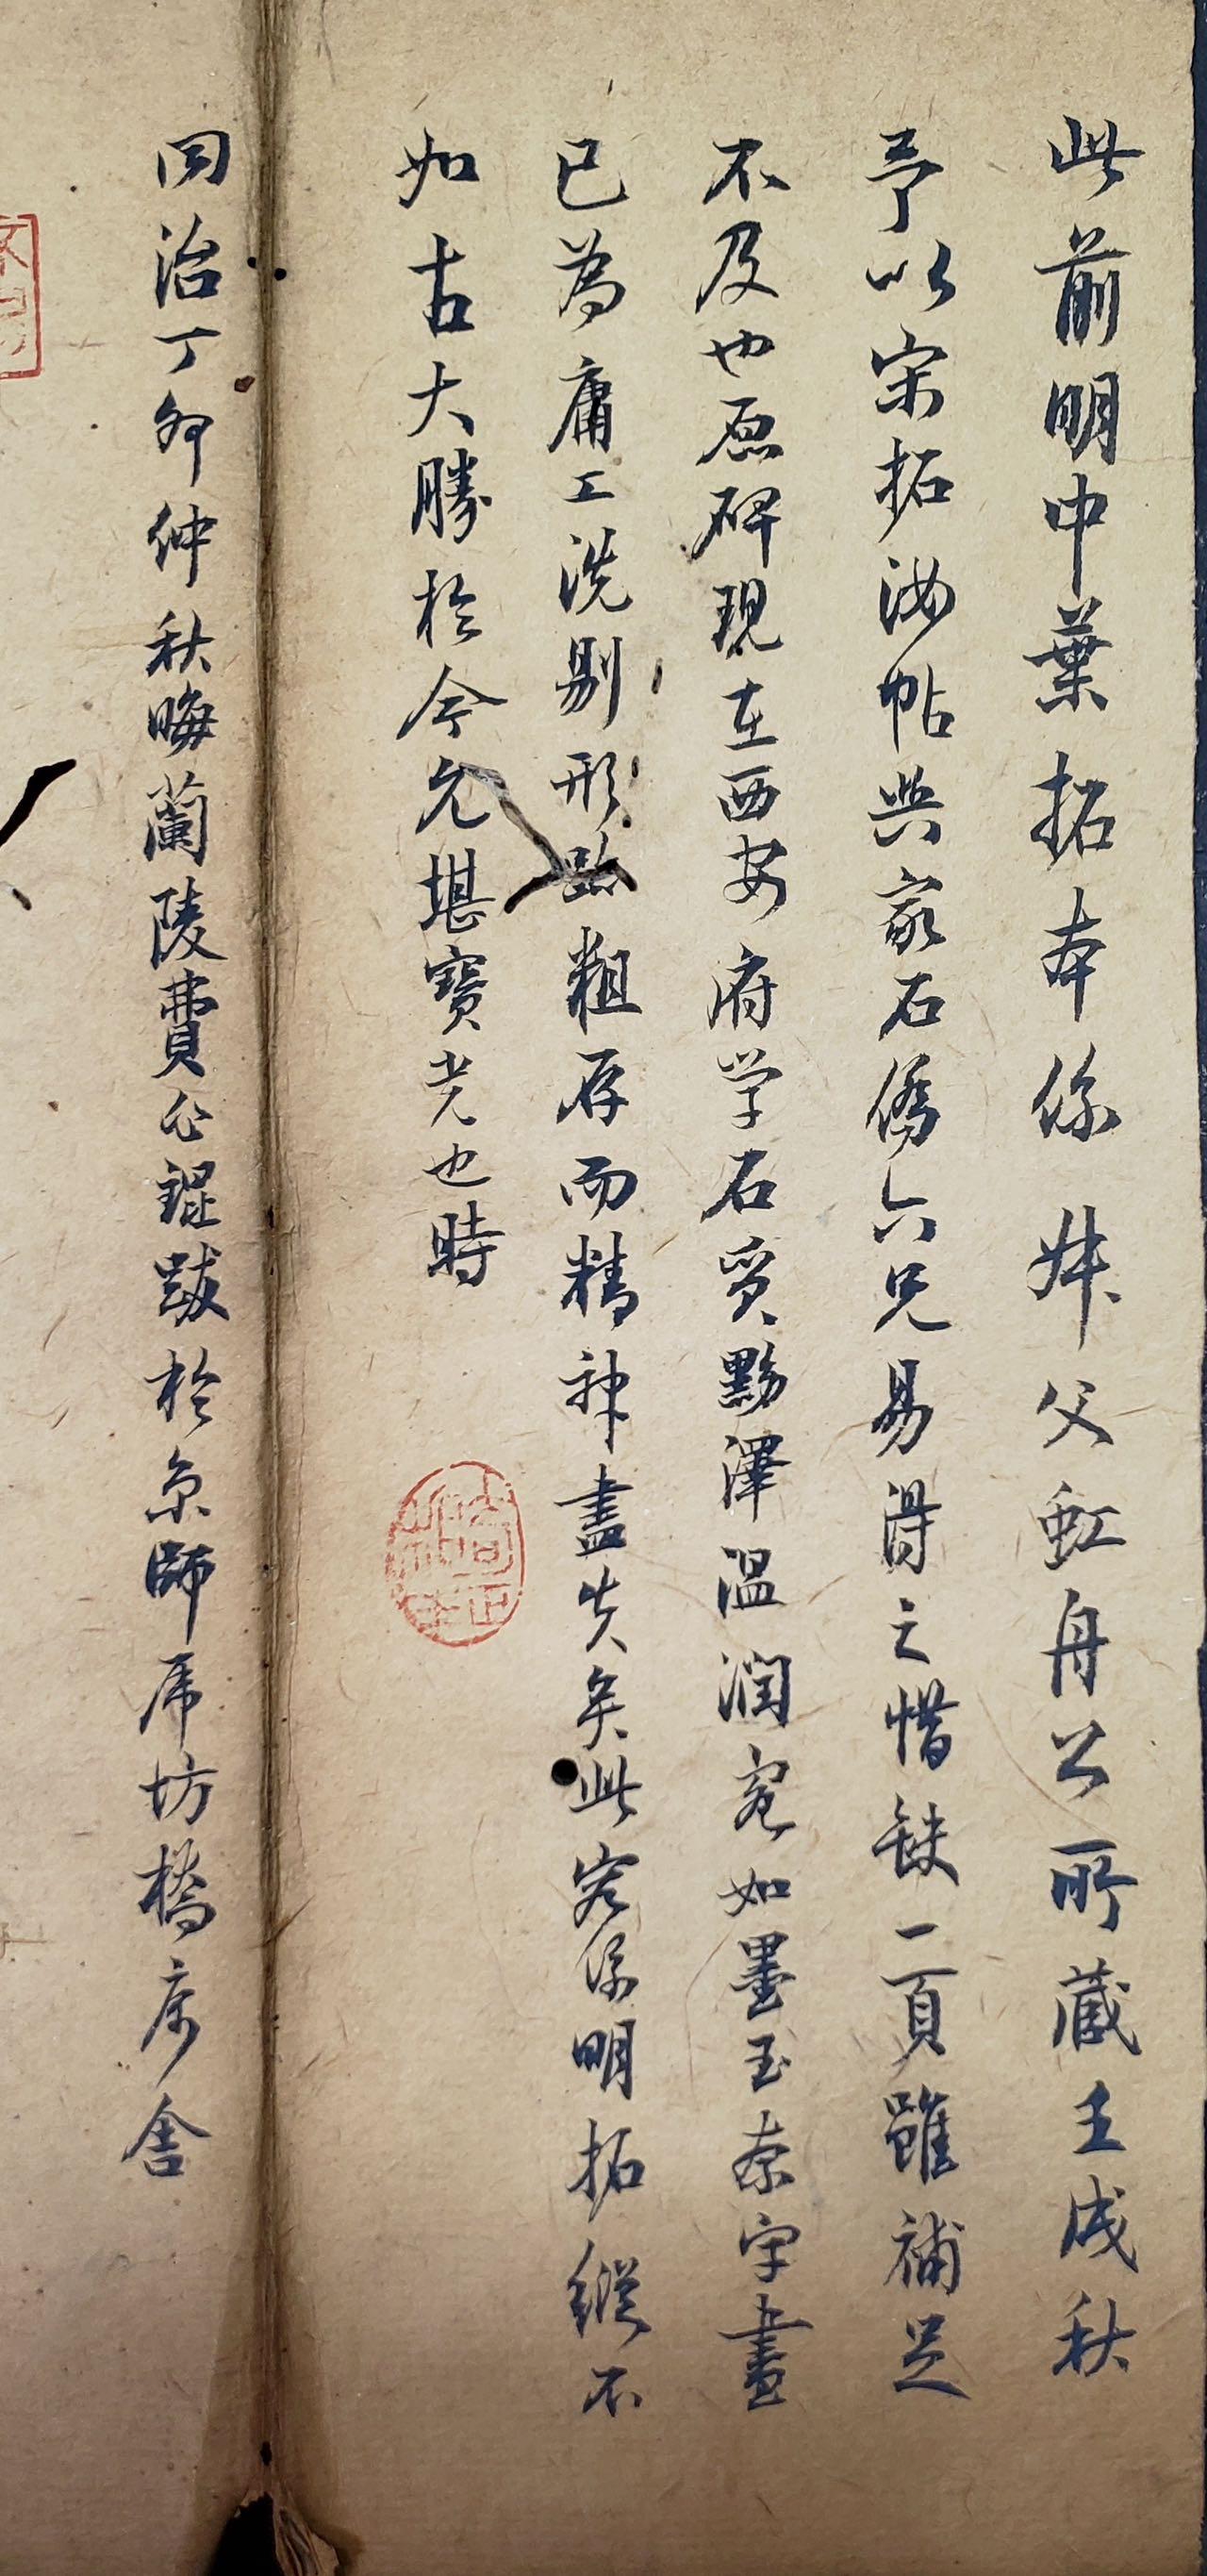 此前明中葉拓本係 叔父虹舟公所藏壬戌秋
予以宋拓汝帖與家石僑六兄易得之惜缺二頁雖補足
不及也原碑現在西安府学石質黝澤溫潤宛如墨玉奈字畫
已為庸工洗剔形跡粗存而精神盡失矣此案係明拓縱不
如古大勝於今尤堪寶光也時
同治丁卯仲秋晦蘭陵費公錕跋於京師虎坊橋寓舍